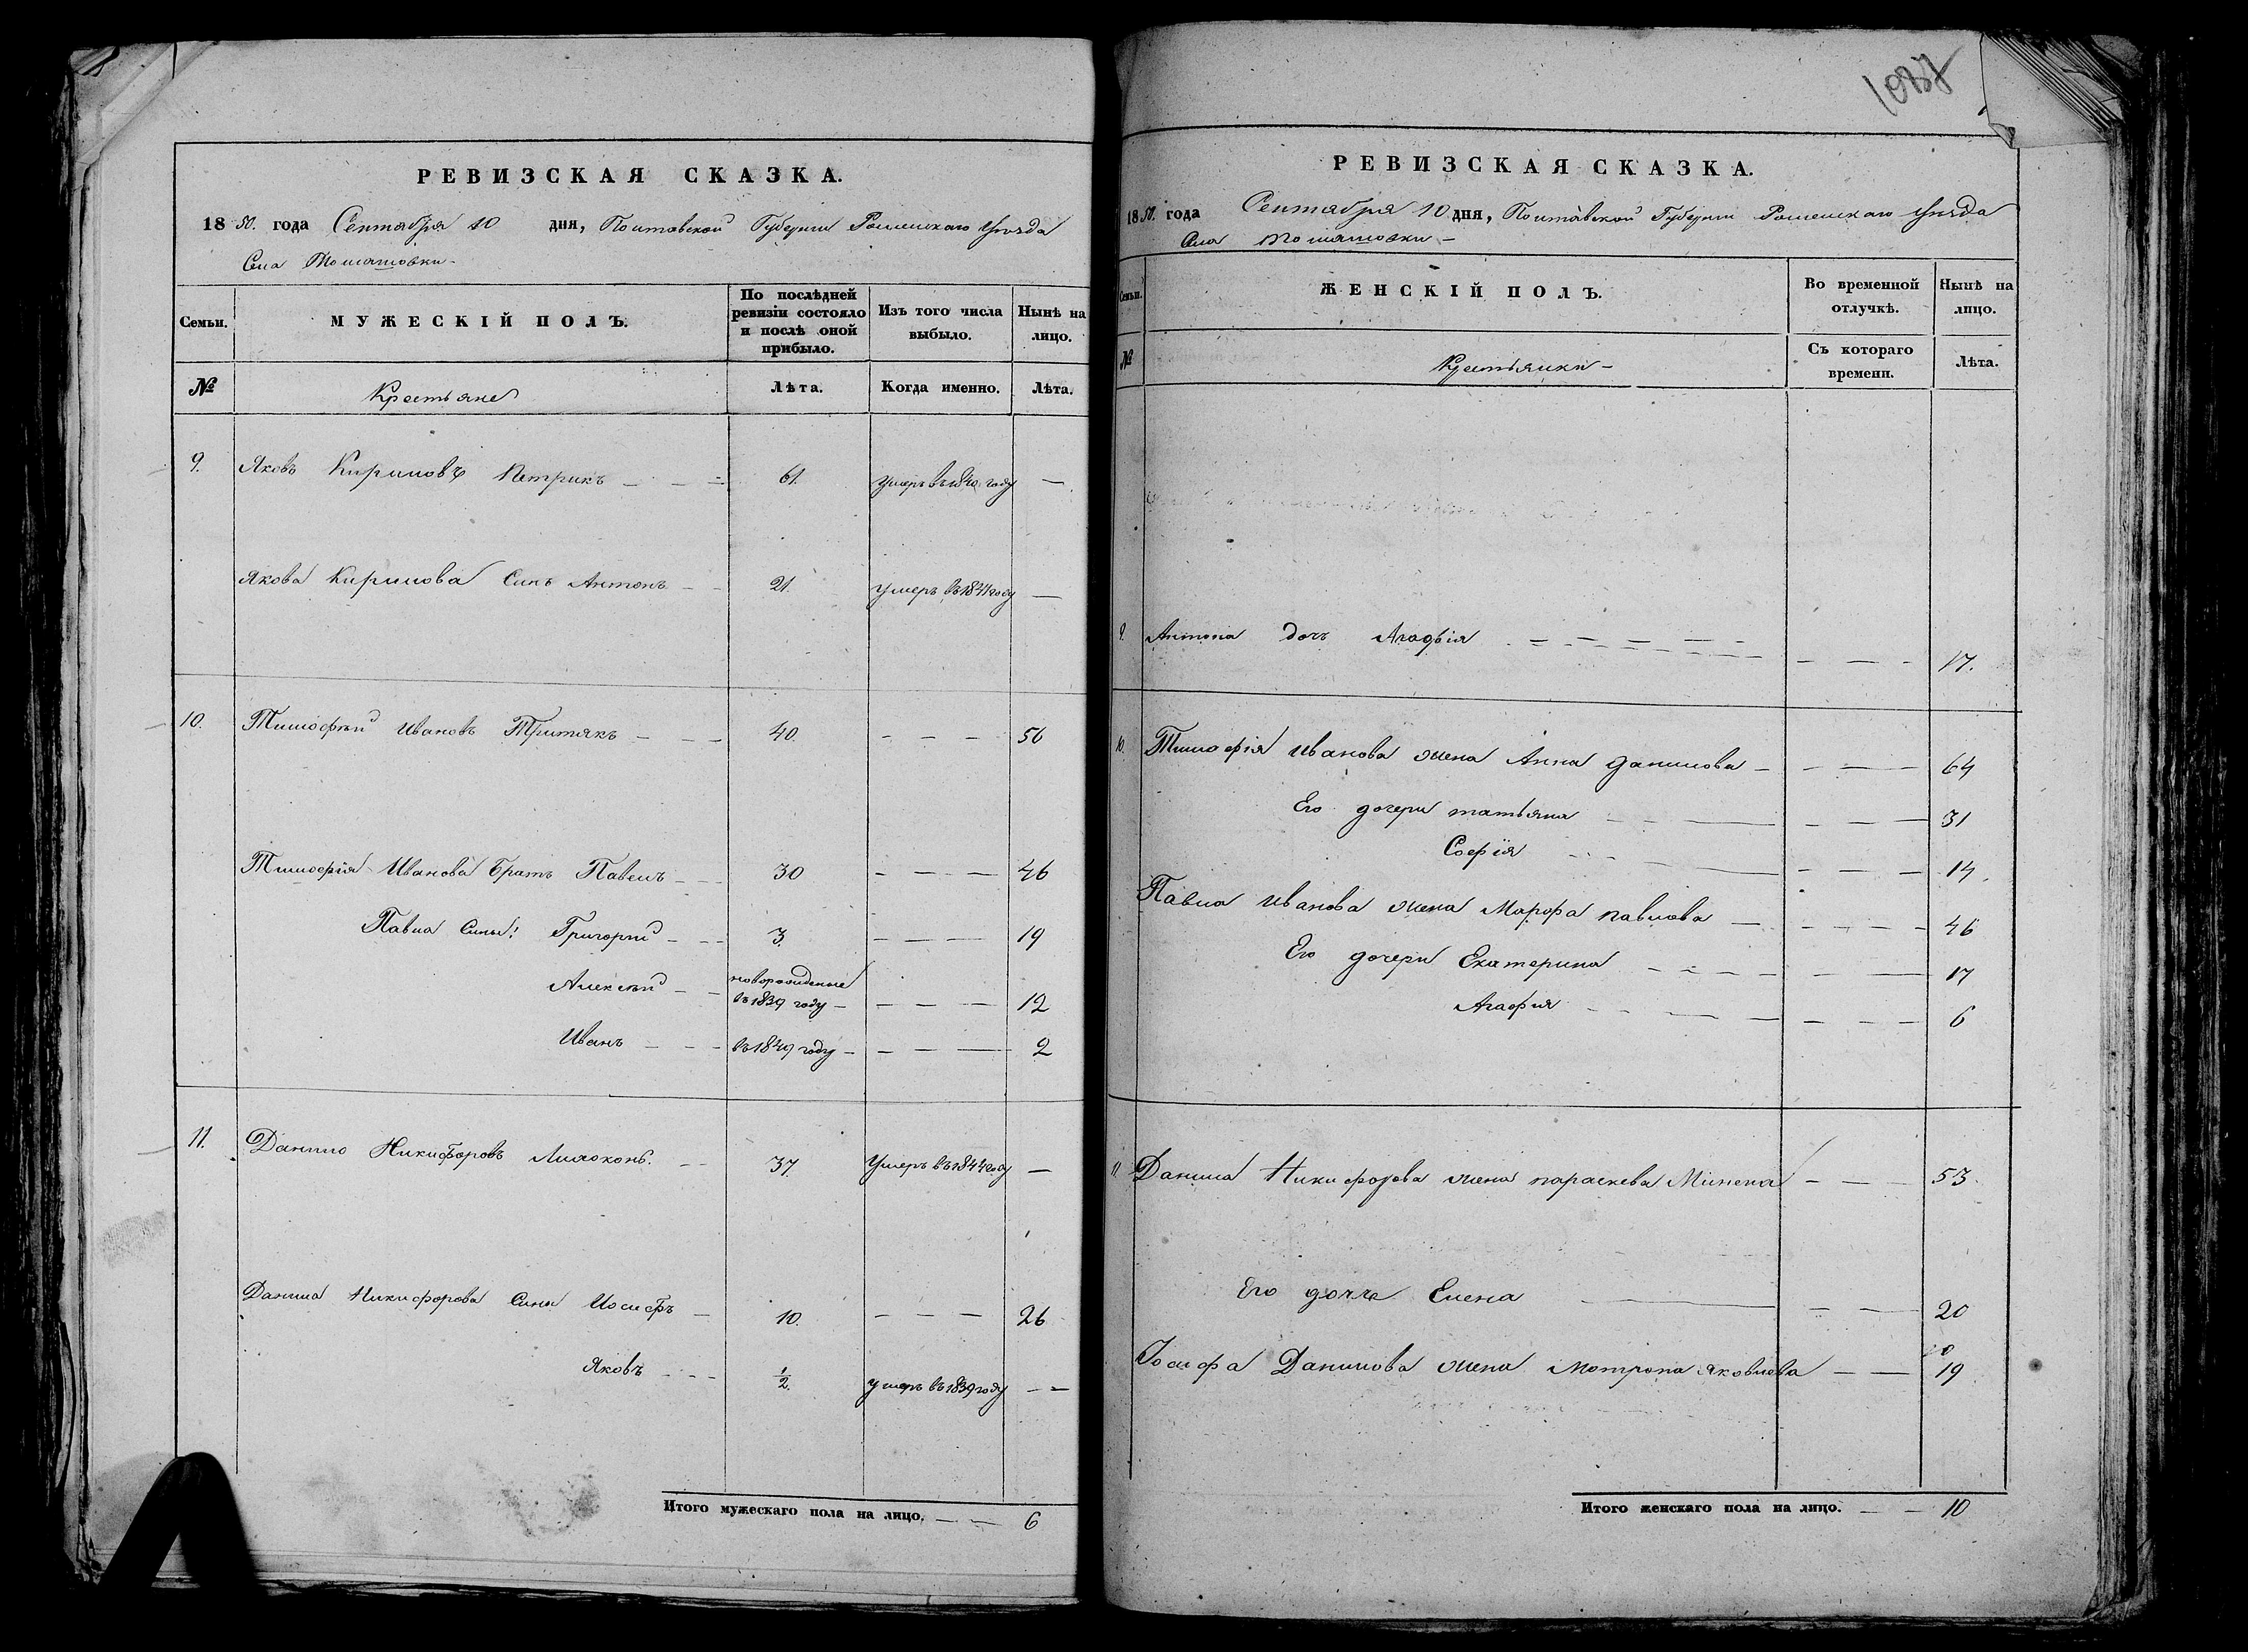 РЕВИЗСКАЯ СКАЗКА.
1850. года Сентября 10 дня, Полтавской Губернии Роменскаго уѣзда
Села Томашовки
Семьи.
МУЖЕСКІЙ ПОЛЪ.
По послѣдней ревизіи состояло и послѣ оной прибыло.
Изъ того числа выбыло.
Нынѣ на лицо.
№
Крестьяне
Лѣта.
Когда именно.
Лѣта.
9. Яковъ Кириловъ Петрикъ — — — 61. умеръ въ 1840 году —
Якова Кирилова Синъ Антонъ — — 21. умеръ въ 1841 году —
10. Тимофѣй Ивановъ Тритякъ — — — 40. — — — 56
Тимофія Иванова братъ Павелъ — — 30 — — — 46
Павла Сины: Григорій — — 3. — — — 19
Алексѣй — — новорожденые въ 1839 году — — — — 12
Иванъ — — — въ 1849 году — — — — 2
11. Данило Никифоровъ Лихоконь. — — 37. Умеръ въ 1844 году —
Данила Никифорова Сины Иосифъ — 10. — — — 26
Яковъ — — — 1/2. умеръ въ 1839 году — —
Итого мужескаго пола на лицо. — — 6
1037
РЕВИЗСКАЯ СКАЗКА.
1850. года Сентября 10 дня, Полтавской Губернии Роменскаго уѣзда
Села Томашовки —
Семьи.
ЖЕНСКІЙ ПОЛЪ.
Во временной отлучкѣ.
Нынѣ на лицо.
№
Крестьянки —
Съ котораго времени.
Лѣта.
9. Антона дочь Агафія — — — — — — — 17.
10. Тимофія Иванова жена Анна Данилова — — — — 64
Его дочери татьяна — — — — — 31
Софія — — — — — 14
Павла Иванова жена Марфа павлова — — — — — 46
Его дочери Екатерина — — — — — — 17
Агафия — — — — — — 6
11. Данила Никифорова жена параскева Минена — — — 53.
Его дочка Елена — — — 20
Іосифа Данилова жена Мотрона Яковлева — — 19
Итого женскаго пола на лицо. — — 10